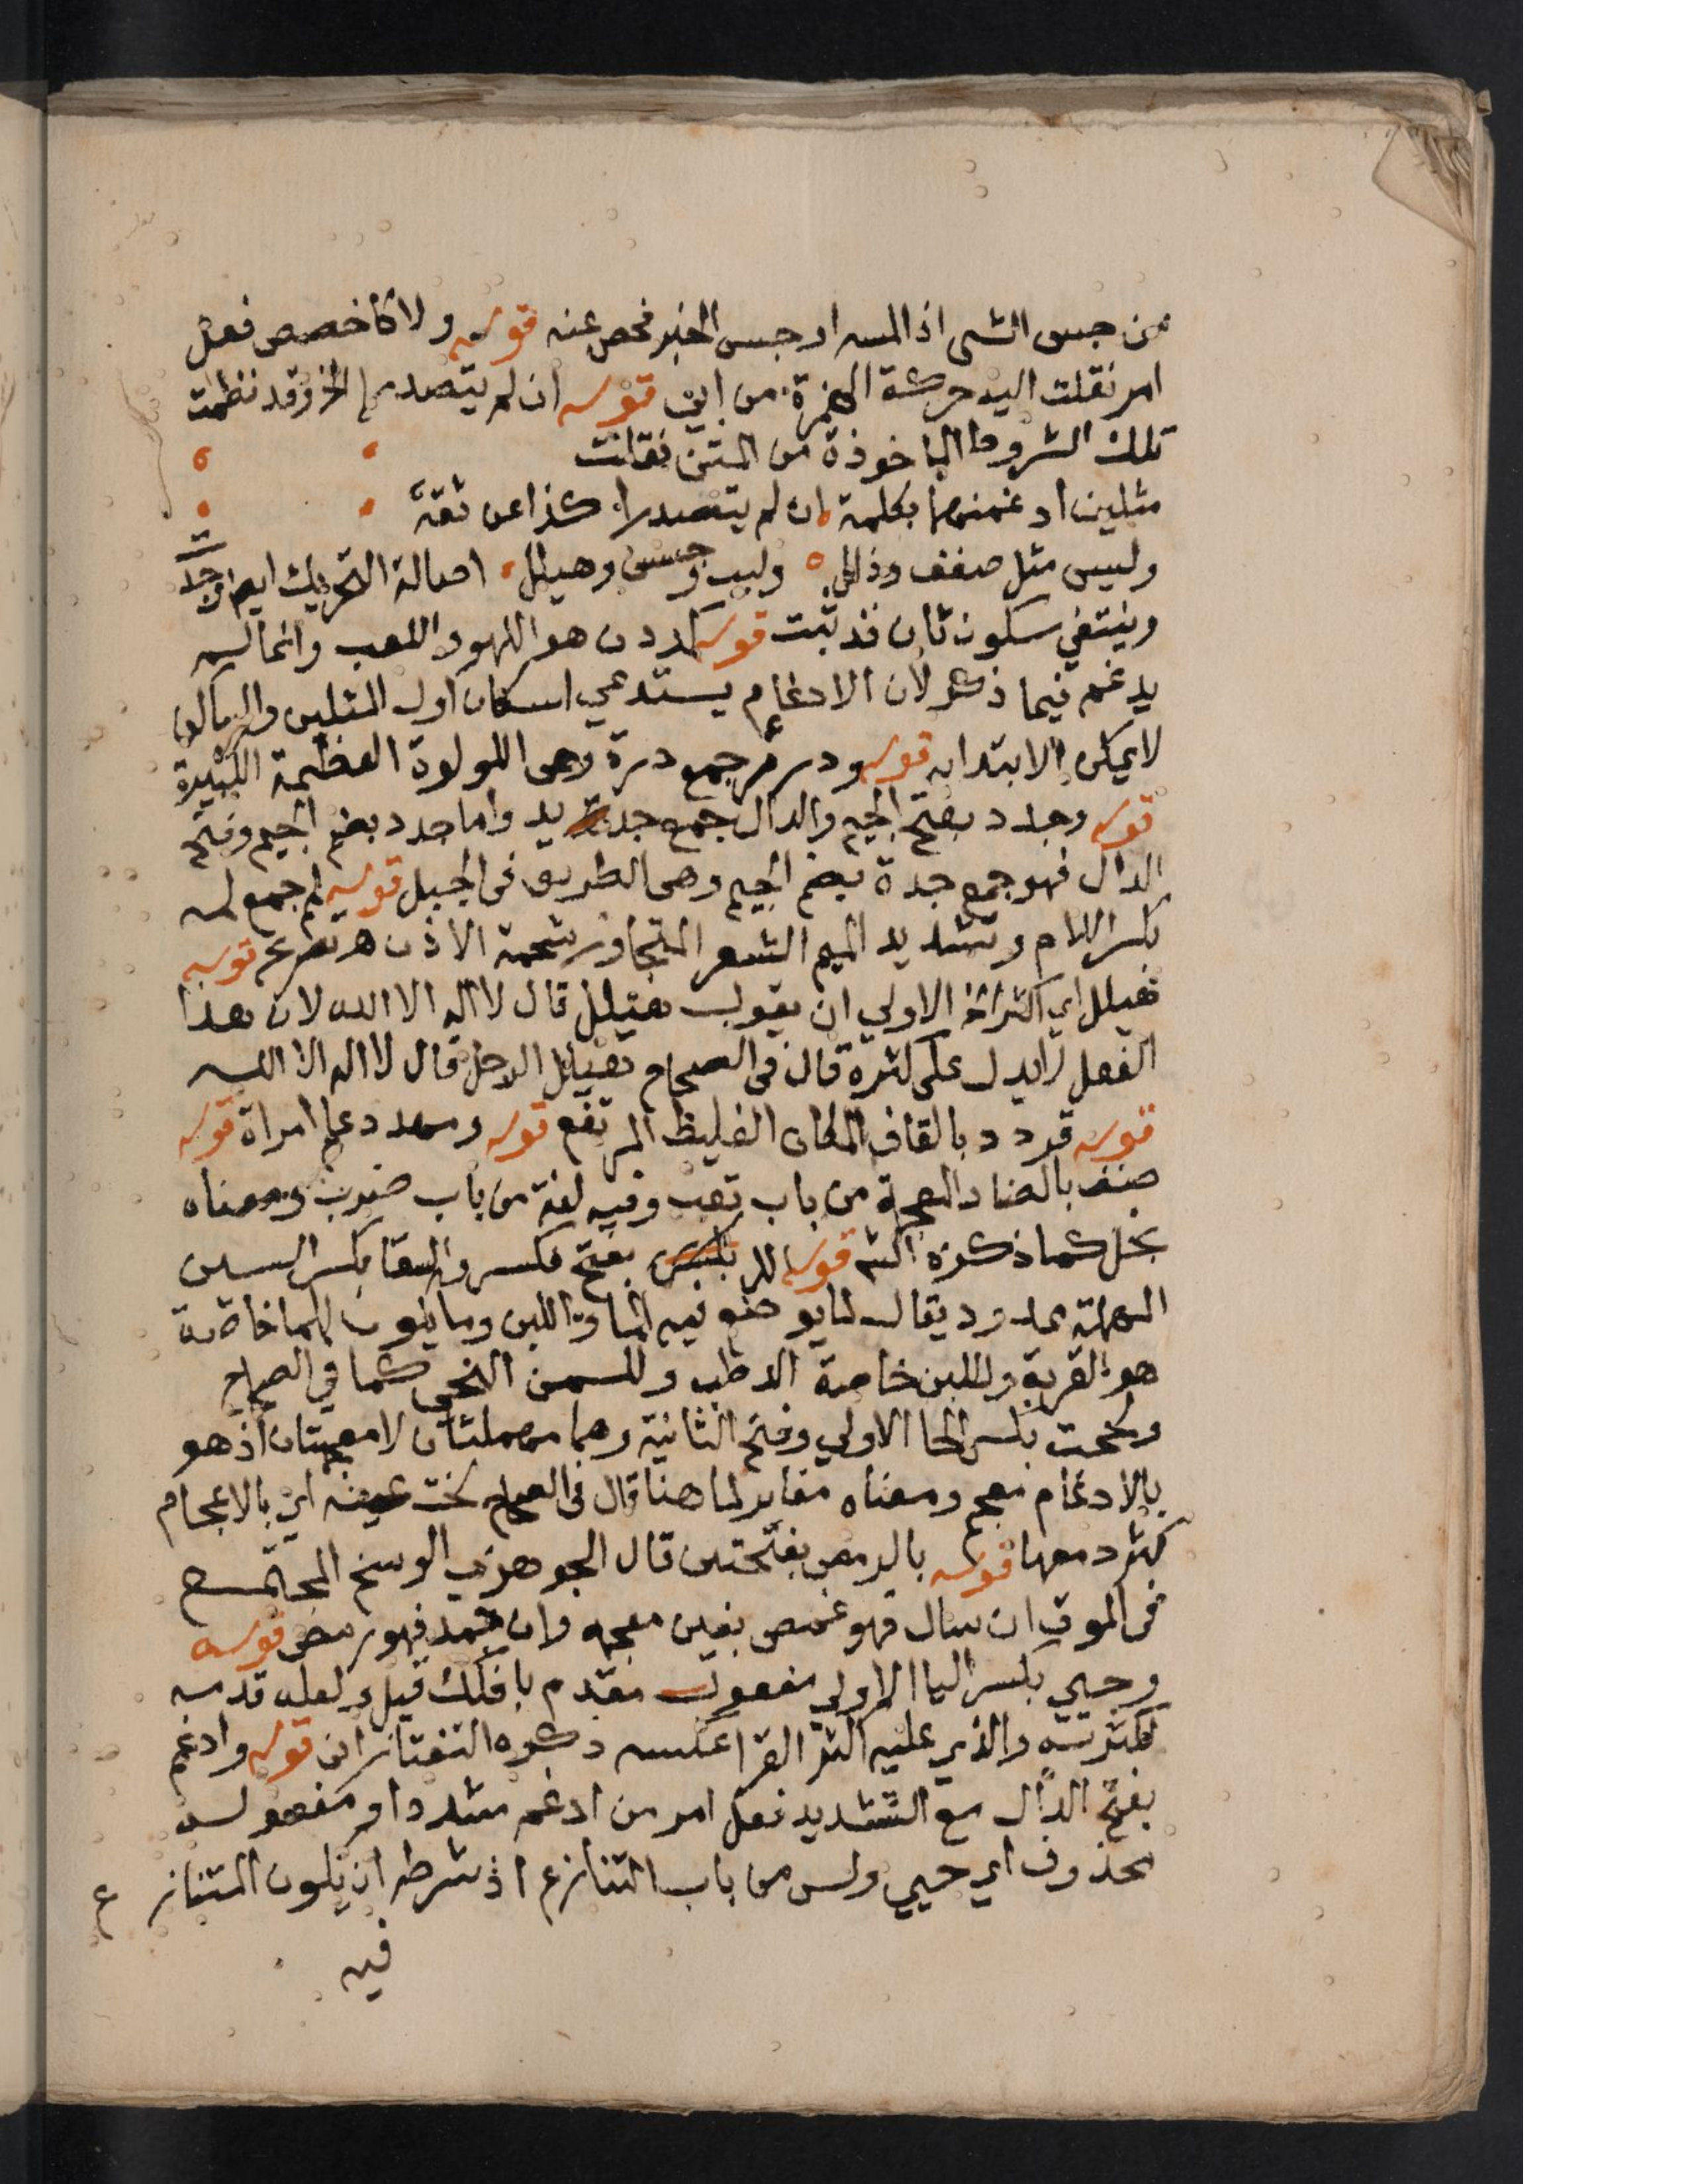 من جس الشى اذا لمسه او جس الخبر فحص عنه قوله ولا كاخصص فعل
امر نقلت اليه حركة الهمزة من ابى قوله ان لم يتصدرا الخ وقد نظمت
تلك الشروط الماخوذة من المتن فقلت
مثلين ادغمنهما بكلمة ان لم يتصدرا كذا عن ثقة
وليس مثل صفف وذلل ولبب وجسس وهيلل اصالة التحريك ايضا وجدت
وينتفي سكون ثان قد ثبت قوله كددن هو اللهو واللعب وانما لم
يدغم فيما ذكر لان الادغام يستدعي اسكان اول المثلين والساكن
لا يمكن الابتدا به قوله ودرر جمع درة وهى اللولوة العظيمة الكبيرة
قوله وجدد بضم الجيم والدال جمع جديد واما جدد بضم الجيم وفتح
الدال فهو جمع جدة بضم الجيم وهى الطريق فى الجبل قوله لمم جمع لمه
بكسر اللام وتشديد الميم الشعر المتجاوز شحمة الاذن هـ تصريح قوله
هيلل اي اكثر الخ الاولي ان يقول هيلل قال لا اله الا الله لان هذا
الفعل لا يدل على كثرة قال فى الصحاح هيلل الرجل قال لا اله الا الله
قوله قردد بالقاف المكان الغليظ المرتفع قوله ومهدد علم امراة قوله
ضنن بالضاد المعجمة من باب تعب وفيه لغة من باب ضرب ومعناه
بخل كما ذكره الش قوله للر بفتح فكسر والسقا بكسر السين
المهملة ممدود يقال لما يوضع فيه الما واللبن وما يكون للما خاصة
هو القربة وللبن خاصة الوطب وللسمن النحى كما في الصحاح
ولححت بكسر الحا الاولي وفتح الثانية وهما مهملتان لا معجمتان اذ هو
بالادغام معجم ومعناه مغاير لما هنا قال فى الصحاح لخت عينه اي بالاعجام
كثر دمعها قوله بالرمص بفتحتين قال الجوهري الوسخ المجتمع
فى الموق ان سال فهو غمص بغين معجمه وان جمد فهو رمص قوله
وحيي بكسر اليا الاولي مفعول مقدم بافكك قيل ولعله قدمه
لكثرته والذي عليه اكثر القرا عكسه ذكره التفتازانى قوله وادغم
بفتح الدال مع التشديد فعل امر من ادغم مشددا ومفعوله
محذوف اي حيي وليس من باب التنازع اذ شرطه ان يكون المتنازع
فيه